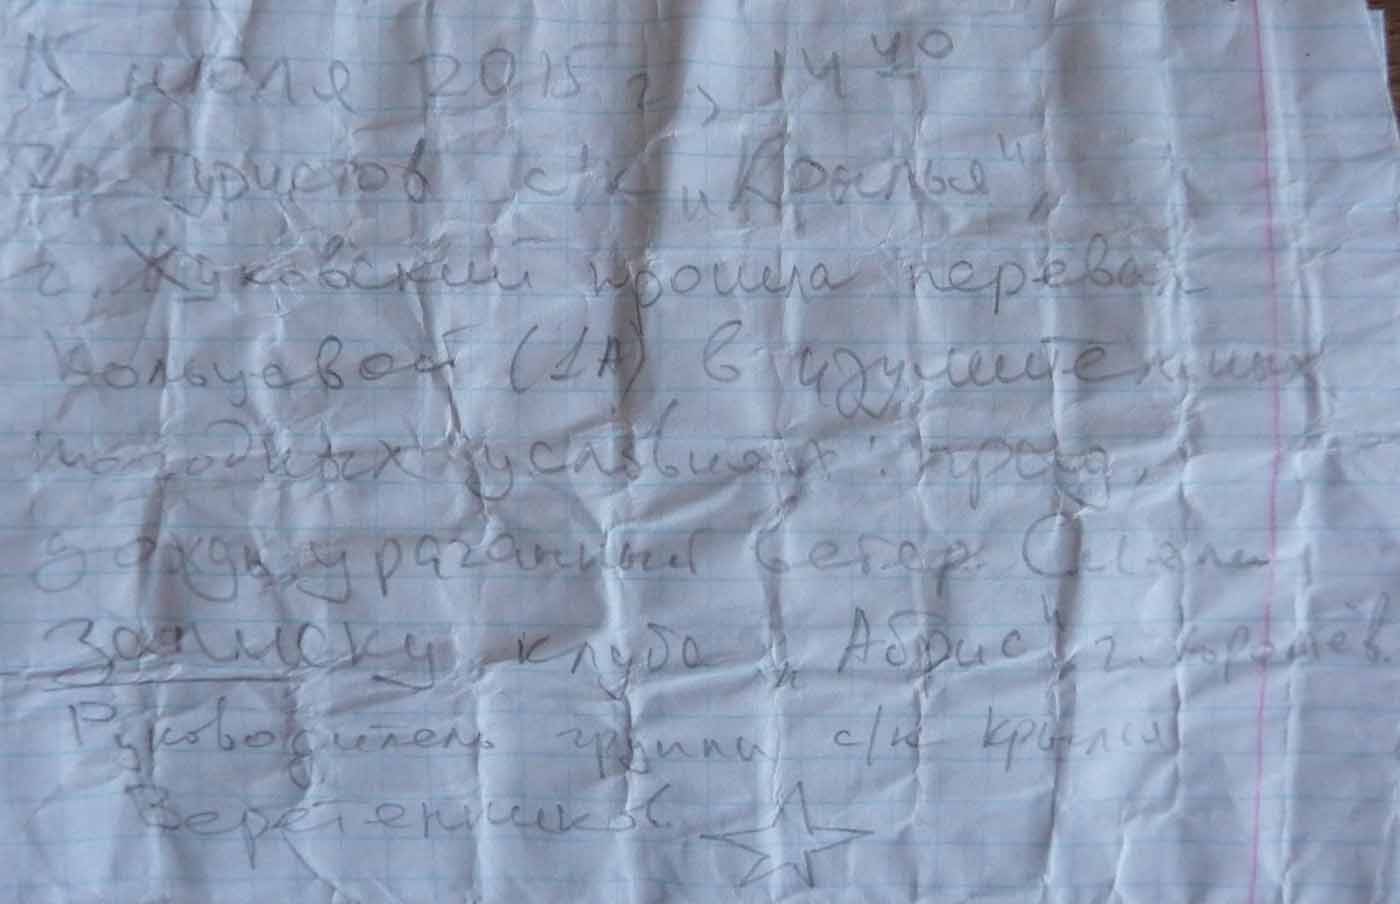 15 июля 2015 г., 14 40
Гр. туристов с/к „Крылья",
г. Жуковский прошла перевал
Кольцевой (1А) в изумительных
погодных условиях: град,
дождь, ураганный ветер. Сняли
записку клуба „Абрис" г. Королёв.
Руководитель группы с/к Крылья
Веретенников